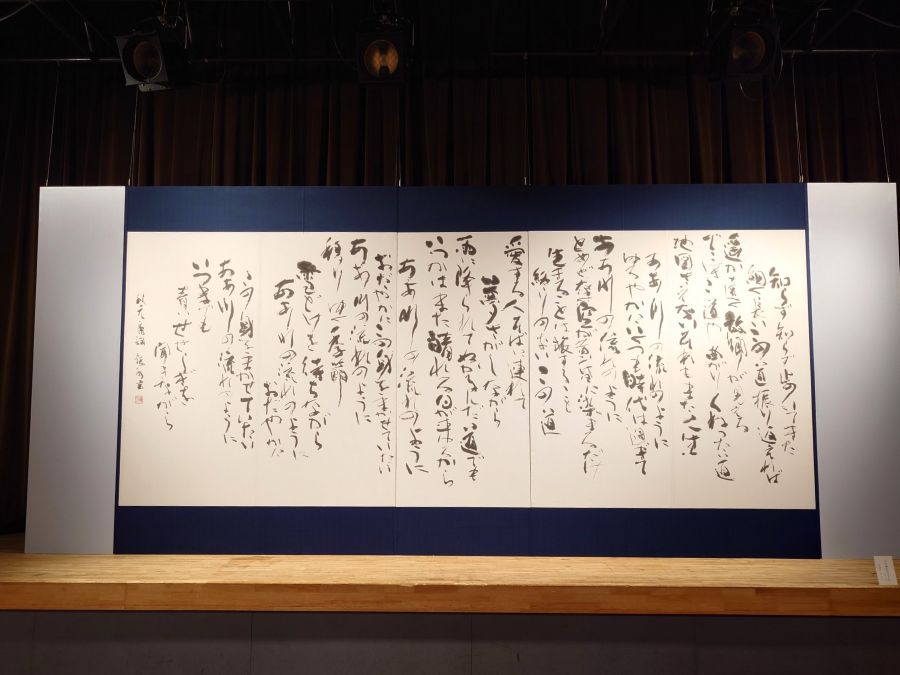 知らず知らず歩いてきた
細く長いこの道 振り返れば
遥か遠く故郷が見える
でこぼこ道や曲がりくねった道
地図さえないそれもまた人生
ああ川の流れのように
ゆるやかにいくつも時代は過ぎて
ああ川の流れのように
とめどなく空が黄昏に染まるだけ
生きることは旅すること
終りのないこの道
愛する人そばに連れて
夢さがしながら
雨に降られてぬかるんだ道でも
いつかはまた晴れる日が来るから
ああ川の流れのように
おだやかにこの身をまかせていたい
ああ川の流れのように
移りゆく季節
雪どけを待ちながら
ああ川の流れのように
おだやかに
この身をまかせていたい
ああ川の流れのように
いつまでも
青いせせらぎを
聞きながら
秋元康詞